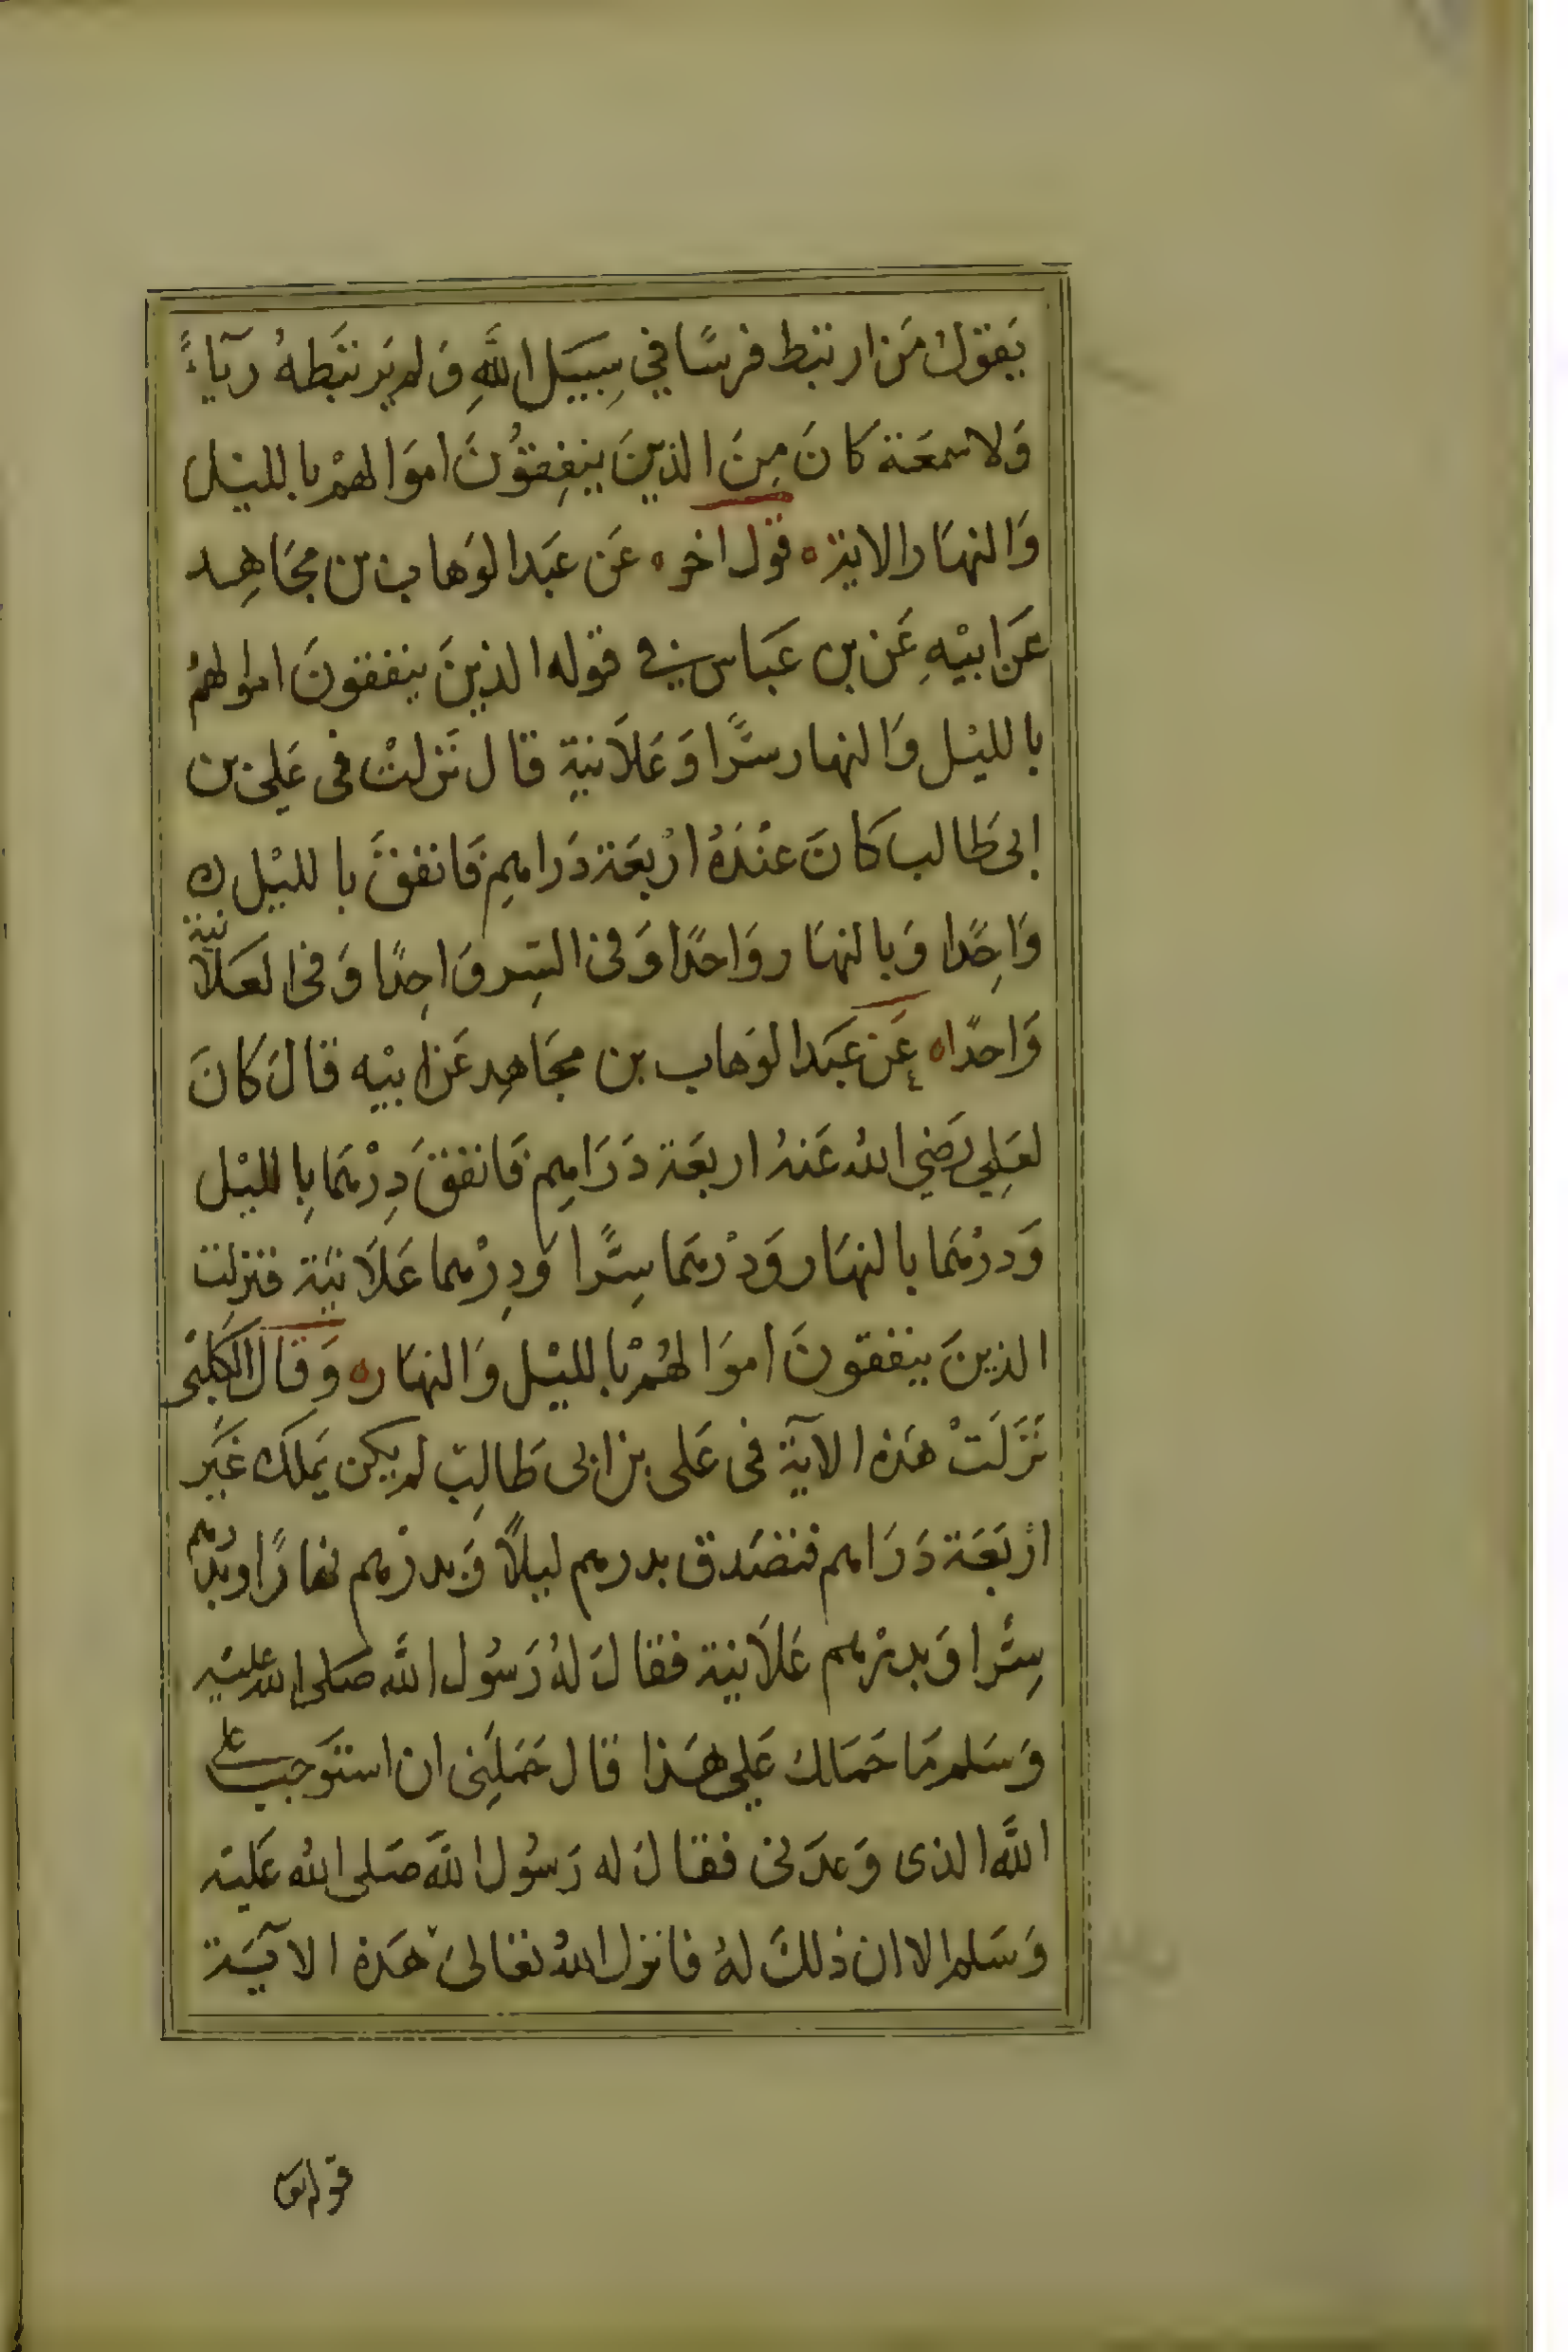 يَقولُ مَن ارتبط فرسًا في سَبيل اللَّهِ وَلم يَرتبَطهُ رِيآءً
وَلا سمعَة كانَ مِنَ الذينَ ينفِقوُنَ اموَالهمْ بالليْل
وَالنهَار الاية ه قول اخر ه عَن عَبد الوَهاب بن مجَاهِد
عَن ابيْهِ عَن بن عَبَاس في قوله الذينَ ينفقونَ اموالهمُ
بالليْل وَالنهار سرًّا وَعَلاَنيةِ قال نَزلتْ فى عَلي بن
ابى طَالب كانَ عنْدَهُ ارْبعَة دَراهمِ فَانفقَ بالليْل
وَاحِدًا وَبالنهَار وَاحدًا وَفى السِر وَاحِدًا وَفى العَلاَنية
وَاحدًا ه عَن عَبَد الوَهاب بن مجَاهِد عَن ابيْه قالَ كانَ
لعَلِي رَضي اللهُ عَنهُ اربعَة دَرَاهِم فَانفقَ دِرْهمَا بِالليْل
وَدرْهمَا بالنهَار وَدرْهمَا سِرًّا وَدِرْهما عَلاَنيَة فنزلت
الذينَ ينفقونَ اموَالهُمْ بالليْل وَالنهَار ه وَقال الكَلبْى
نَزَلَتْ هَذه الايَة فى عَلى بن ابى طَالِب لم يكن يَملكُ غَيَر
ارْبَعَة دَرَاهم فتصَدق بدرهم ليلاً وَبدرْهم نهارًا وبدرهم
سِرًّا وَبدرْهم عَلاَنية فقالَ لهُ رَسُول اللَّه صَلى الله عليَه
وَسَلم مَا حَمَلك عَلي هَذا قال حَمَلَنِى ان استوَجب على
اللَّه الذى وَعدَنى فقالَ له رَسُول اللَّه صَلى اللهُ عَليَه
وَسَلم الا ان ذلكَ لهُ فانزل اللهُ تعَالىَ هَذه الآيَة